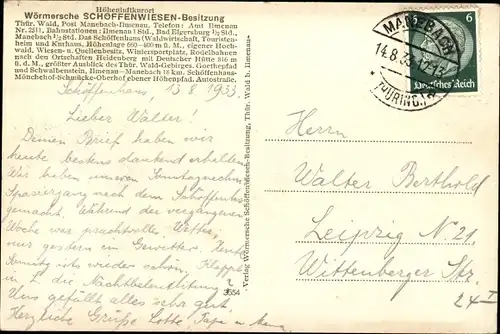 Höhenluftkurort
Wörmersche SCHÖFFENWIESEN-Besitzung
Thür. Wald, Post Manebach-Ilmenau, Telefon: Amt Ilmenau
Nr. 2511, Bahnstationen: Ilmenau 1 Std., Bad Elgersburg 1½ Std.,
Manebach ½ Std. Das Schöffenhaus (Waldwirtschaft, Touristen-
heim und Kurhaus, Höhenlage 660–400 m ü. M., eigener Hoch-
wald, Wiesen- u. Quellenbesitz, Wintersportplatz, Rodelbahnen
nach den Ortschaften Heidenberg mit Deutscher Hütte 816 m
ü. d. M., größter Ausblick des Thür. Wald-Gebirges. Goethepfad
und Schwalbenstein, Ilmenau—Manebach 18 km. Schöffenhaus-
Mönchshof-Schmücke-Oberhof ebener Höhenpfad. Autostraße.
Schöffenhaus, 13.8.1933
Lieber Walter!
Deinen Brief haben wir
heute bestens dankend erhalten.
Wir haben unseren Sonntagnachm.
Spaziergang nach dem Schöffenhaus
gemacht. Während der vergangenen
Woche war prachtvolles Wetter,
nur gestern ein Gewitter. Heute
Sonntag ists wieder schön. Klappt
in L. die Nachtbeleuchtung?
Uns gefällt alles sehr gut.
Herzliche Grüße Lotte, Papa u. Mama
Verlag Wörmersche Schöffenwiesen-Besitzung, Thür. Wald b. Ilmenau.
3554
MANEBACH
14.8.33
THÜRING.
6
Deutsches Reich
Herrn
Walter Berthold
Leipzig N 21
Wittenberger Str.
24 I